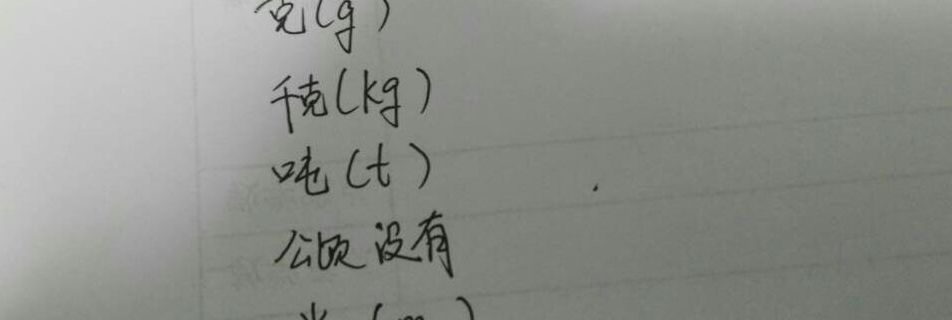 克(g)
千克(kg)
吨(t)
公顷 没有
米(m)